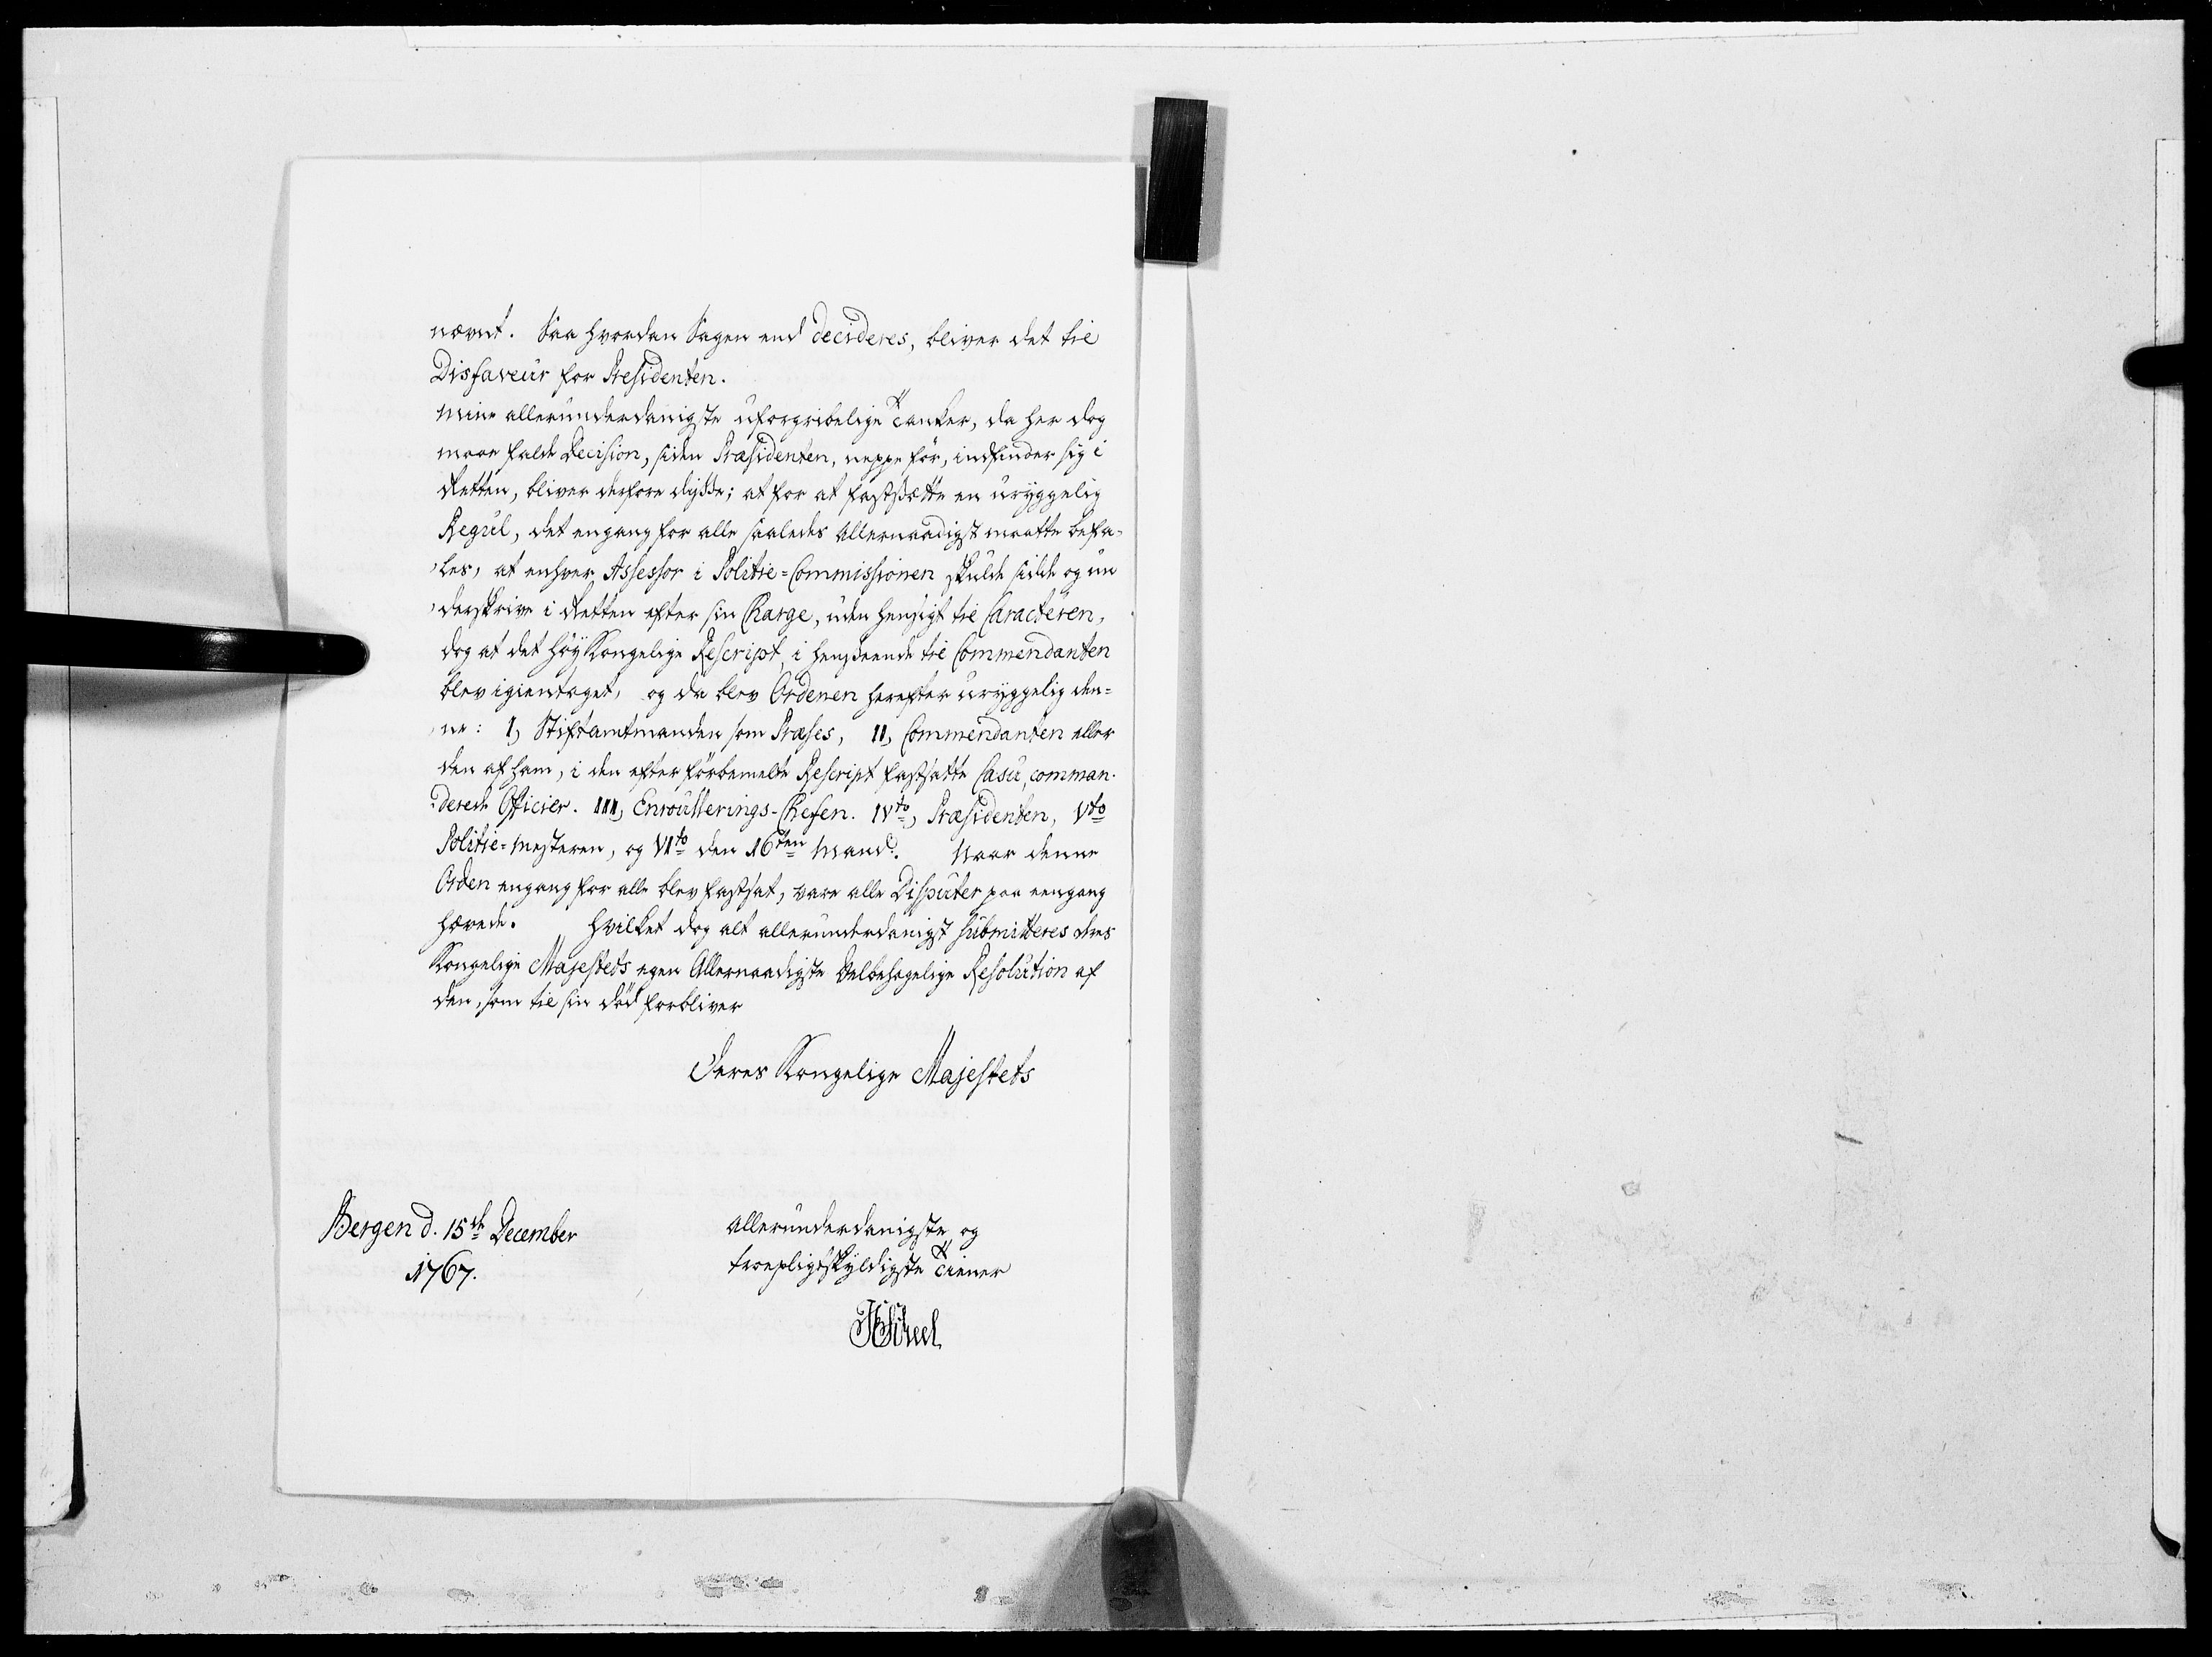 nævnt. Saa hvordan Sagen end decideres, bliver det til
Disfaveur for Presidenten.
Mine allerunderdanigste uforgribelige Tanker, da her dog
maae falde Decision, siden Præsidenten, neppe før, indfinder sig i
Retten, bliver derfore disse; at for at fastsætte en uryggelig
Regul, det engang for alle saaledes Allernaadigst maatte befa-
les, at enhver Assessor i Politie-Commissionen skulde sidde og un
derskrive i Retten efter sin Charge, uden hensigt til Caracteren,
dog at det Høy Kongelige Rescript, i henseende til Commendanten
blev igientaget, og da blev Ordenen herefter uryggelig den-
ne: I, Stiftamtmanden som Præses, II, Commendanten eller
den af ham, i den efter förbemelte Rescript fastsatte Casu, comman-
derede Officier. III, Enroullerings-Chefen. IVto, Præsidenten, Vto
Politie-Mesteren, og VIto den 16ten Mand. Naar denne
Orden engang for alle blev fastsat, vare alle Disputer paa eengang
hævede. Hvilket dog alt allerunderdanigst submitteres Deres
Kongelige Majestets egen Allernaadigste Velbehagelige Resolution af
den, som til sin død forbliver
Deres Kongelige Majestets
Bergen d. 15de December
1767.
allerunderdanigste og
troepligtskyldigste Tiener